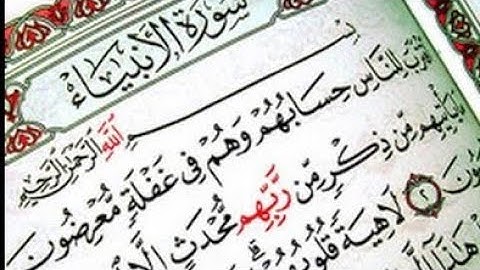 سُورَةُ الْأَنبِيَاءِ
بِسْمِ اللَّهِ الرَّحْمَنِ الرَّحِيمِ
اقْتَرَبَ لِلنَّاسِ حِسَابُهُمْ وَهُمْ فِي غَفْلَةٍ مُّعْرِضُونَ
يَأْتِيهِم مِّن ذِكْرٍ مِّن رَّبِّهِم مُّحْدَثٍ
٢ لَاهِيَةً
هَذَا